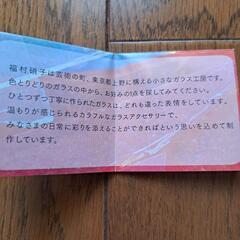 福村硝子は芸術の町、東京都上野に構える小さなガラス工房です。
色とりどりのガラスの中から、お好みの1点を探してみてください。
ひとつずつ丁寧に作られたガラスは、どれも違った表情をしています。
温もりが感じられるカラフルなガラスアクセサリーで、
みなさまの日常に彩りを添えることができればという思いを込めて制
作しています。